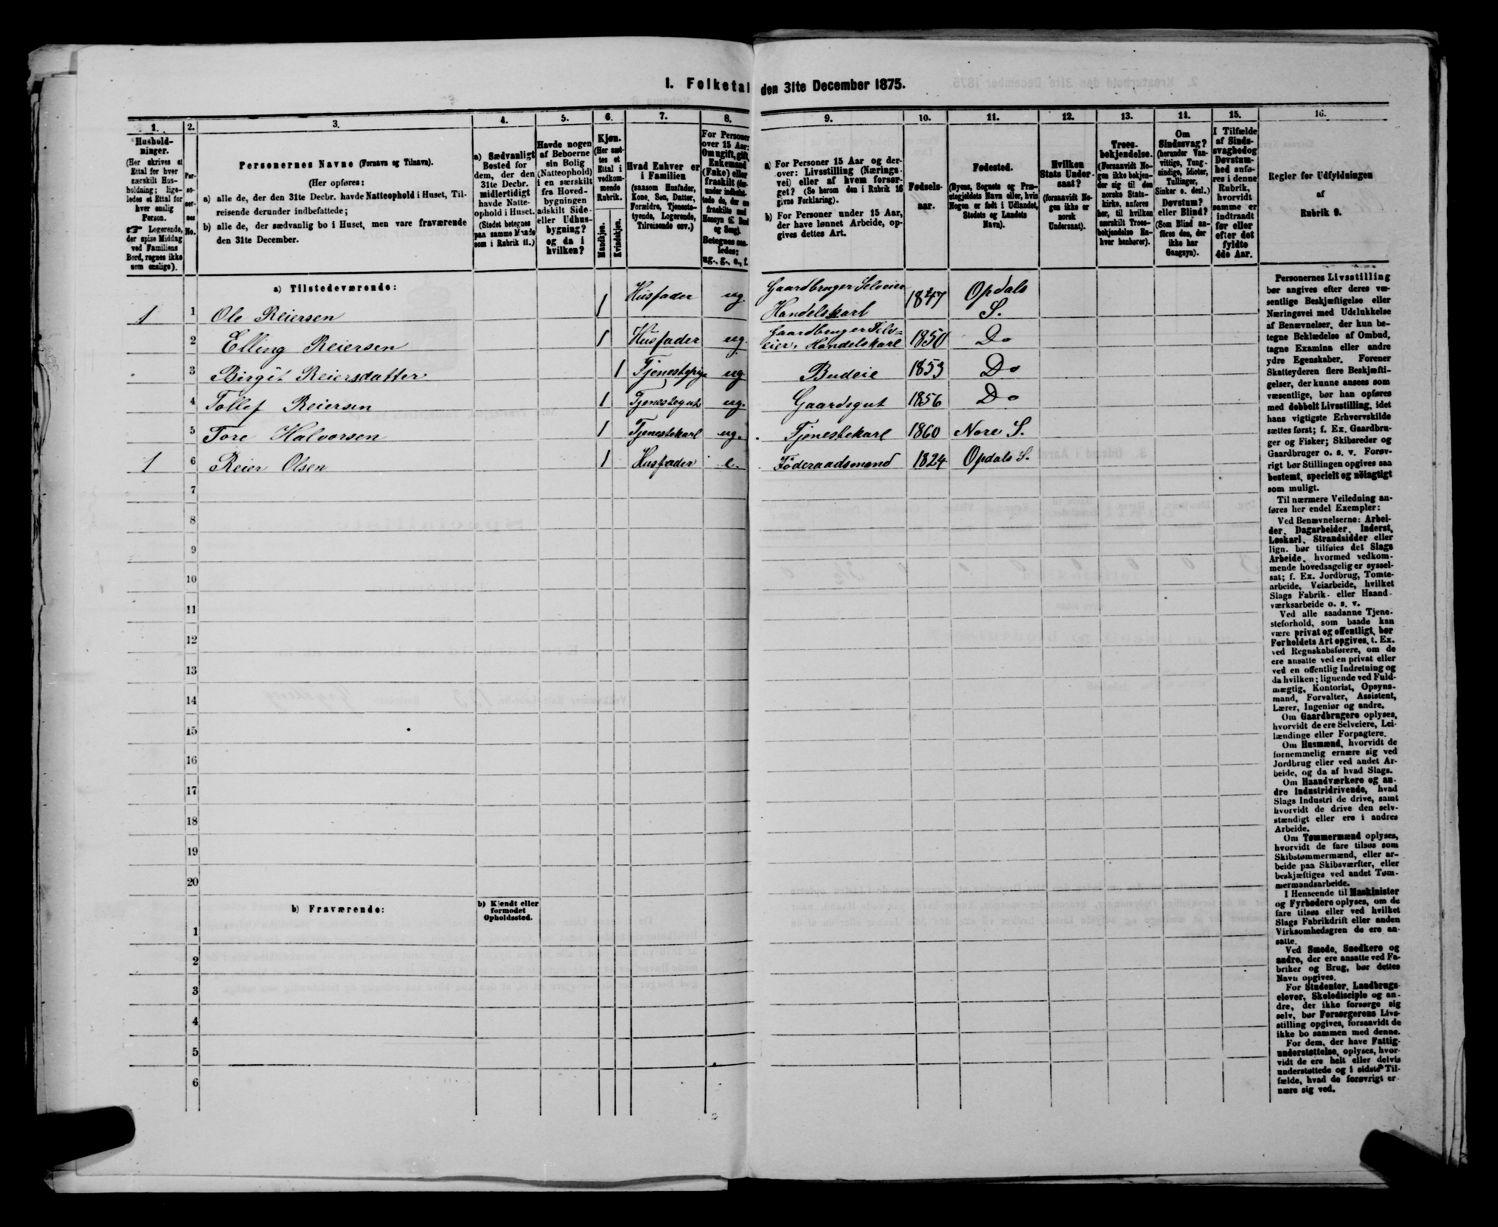 I. Folketal den 31te December 1875.
1.
Hushold-
ninger.
(Her skrives et
Ettal for hver
særskilt Hus-
holdning; lige-
ledes et Ettal for
hver enslig
Person.
☞ Logerende,
der spise Middag
ved Familiens
Bord, regnes ikke
som enslige).
2.
Per-
so-
ner-
nes
No.
3.
Personernes Navne (Fornavn og Tilnavn).
(Her opføres:
a) alle de, der den 31te Decbr. havde Natteophold i Huset, Til-
reisende derunder indbefattede;
b) alle de, der sædvanlig bo i Huset, men vare fraværende
den 31te December.
4.
a) Sædvanligt
Bosted for
dem, der den
31te Decbr.
midlertidigt
havde Natte-
ophold i Huset.
(Stedet betegnes
paa samme Maade
som i Rubrik 11.)
5.
Havde nogen
af Beboerne
sin Bolig
(Natteophold)
i en særskilt
fra Hoved-
bygningen
adskilt Side-
eller Udhus-
bygning?
og da i
hvilken?
6.
Kjøn.
(Her sæt-
tes et
Ettal i
vedkom-
mende
Rubrik.
Mandkjøn.
Kvindekjøn.
7.
Hvad Enhver er
i Familien
(saasom Husfader,
Kone, Søn, Datter,
Forældre, Tjeneste-
tyende, Logerende,
Tilreisende osv.)
8.
For Personer
over 15 Aar:
Om ugift, gift,
Enkemand
(Enke) eller
fraskilt
Betegnes saa-
ledes:
ug., g., e., f.
9.
a) For Personer 15 Aar og der-
over: Livsstilling (Nærings-
vei) eller af hvem forsør-
get? (Se herom den i Rubrik 16
givne Forklaring).
b) For Personer under 15 Aar,
der have lønnet Arbeide, op-
gives dettes Art.
10.
Fødsels-
aar.
11.
Fødested.
(Byens, Sognets og Præ-
stegjeldets Navn eller, hvis
Nogen er født i Udlandet,
Stedets og Landets
Navn).
12.
Hvilken
Stats Under-
saat?
(forsaavidt No-
gen ikke er
norsk
Undersaat).
13.
Troes-
bekjendelse.
(Forsaavidt No-
gen ikke bekjen-
der sig til den
norske Stats-
kirke, anføres
her, til hvilken
særskilt Troes-
bekjendelse En-
hver henhører).
14.
Om
Sindssvag?
(herunder Van-
vittige, Tung-
sindige, Idioter,
Tullinger,
Sinker o. desl.)
Døvstum?
eller Blind?
(Som Blind an-
føres den, der
ikke har
Gangsyn).
15.
I Tilfælde
af Sinds-
svaghed og
Døvstum-
hed anfø-
res i denne
Rubrik,
hvorvidt
samme er
indtraadt
før eller
efter det
fyldte
4de Aar.
16.
Regler for Udfyldningen
af
Rubrik 9.
a) Tilstedeværende:
1 1 Ole Reiersen 1 Husfader ug. Gaardbruger Selveier Handelskarl 1847 Opdals S.
2 Elling Reiersen 1 Husfader ug. Gaardbruger Selv-eier, Handelskarl 1850 Do
3 Birgit Reiersdatter 1 Tjenestepige ug Budeie 1853 Do
4 Tollef Reiersen 1 Tjenestegut ug. Gaardsgut 1856 Do
5 Tore Halvorsen 1 Tjenestekarl ug. Tjenestekarl 1860 Nore S.
1 6 Reier Olsen 1 Husfader e. Föderaadsmand 1824 Opdals S.
7
8
9
10
11
12
13
14
15
16
17
18
19
20
b) Fraværende:
b) Kjendt eller
formodet
Opholdssted.
1
2
3
4
5
6
Personernes Livsstilling
bør angives efter deres væ-
sentlige Beskjæftigelse eller
Næringsvei med Udelukkelse
af Benævnelser, der kun be-
tegne Beklædelse af Ombud,
tagne Examina eller andre
ydre Egenskaber. Forener
Skatteyderen flere Beskjæfti-
gelser, der kunne ansees som
væsentlige, bør han opføres
med dobbelt Livsstilling, idet
hans vigtigste Erhvervskilde
sættes først; f. Ex. Gaardbru-
ger og Fisker; Skibsreder og
Gaardbruger o. s. v. Forøv-
rigt bør Stillingen opgives saa
bestemt, specielt og nøiagtigt
som muligt.
Til nærmere Veiledning an-
føres her endel Exempler:
Ved Benævnelserne: Arbei-
der, Dagarbeider, Inderst,
Løskarl, Strandsidder eller
lign. bør tilføies det Slags
Arbeide, hvormed vedkom-
mende hovedsagelig er syssel-
sat; f. Ex. Jordbrug, Tomte-
arbeide, Veiarbeide, hvilket
Slags Fabrik- eller Haand-
værksarbeide o. s. v.
Ved alle saadanne Tjene-
steforhold, som baade kan
være privat og offentligt, bør
Forholdets Art opgives, t. Ex.
ved Regnskabsførere, om de
ere ansatte ved en privat eller
ved en offentlig Indretning og
da hvilken; lignende ved Fuld-
mægtig, Kontorist, Opsyns-
mand, Forvalter, Assistent,
Lærer, Ingeniør og andre.
Om Gaardbrugere oplyses,
hvorvidt de ere Selveiere, Lei-
lændinge eller Forpagtere.
Om Husmænd, hvorvidt de
fornemmelig ernære sig ved
Jordbrug eller ved andet Ar-
beide, og da af hvad Slags.
Om Haandværkere og an-
dre Industridrivende, hvad
Slags Industri de drive, samt
hvorvidt de drive den selv-
stændigt eller ere i andres
Arbeide.
Om Tømmermænd oplyses,
hvorvidt de fare tilsøs som
Skibstømmermænd, eller ar-
beide paa Skibsværfter, eller
beskjæftiges ved andet Tøm-
mermandsarbeide.
I Henseende til Maskinister
og Fyrbødere oplyses, om de
fare tilsøs eller ved hvilket
Slags Fabrikdrift eller anden
Virksomhedsgren de ere an-
satte.
Ved Smede, Snedkere og
andre, der ere ansatte ved Fa-
briker og Brug, bør dettes
Navn opgives.
For Studenter, Landbrugs-
elever, Skoledisciple og an-
dre, der ikke forsørge sig
selv, bør Forsørgerens Livs-
stilling opgives, forsaavidt de
ikke bo sammen med denne.
For dem, der have Fattig-
understøttelse, oplyses, hvor-
vidt de ere helt eller delvis
understøttede og i sidste Til-
fælde, hvad de forøvrigt er-
nære sig ved.